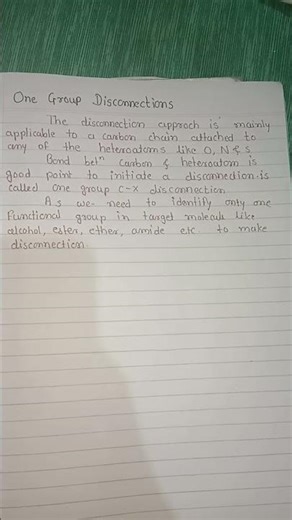 One Group Disconnections
The disconnection approch is mainly
applicable to a carbon chain attached to
any of the heteroatoms like O, N & S.
Bond betn Carbon & heteroatom is
good point to initiate a disconnection.is
called one group C-X disconnection
As we need to identify only one
Functional group in target molecule like
alcohol, ester, ether, amide etc to make
disconnection.